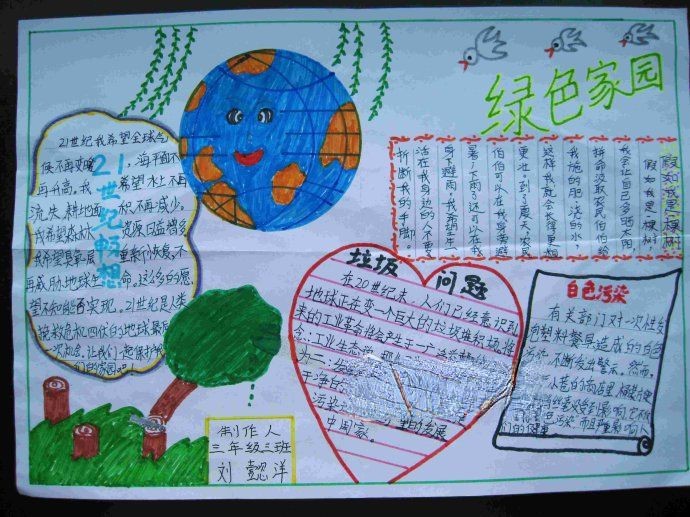 绿色家园
21世纪畅想
21世纪我希望全球气
候不再变暖，海平面不
再升高。我希望水土不再
流失、耕地面积不再减少。
我希望森林资源日益增多
我希望臭氧层重新恢复，不
再威胁地球生命。这么多的愿
望不知能否实现。21世纪是人类
挽救危机四伏的地球最后
一次机会，让我们一起保护我
们的家园吧！
假如我是一棵树
假如我是一棵树
我会让自己多晒太阳
拼命汲取农民伯伯给
我施的肥、浇的水，
这样我就会长得更粗
更壮。到了夏天，农民
伯伯可以在我身旁避
暑，下雨了还可以在我
身下避雨。我希望生
活在我身边的人不要
折断我的手脚。
垃圾问题
在20世纪末，人们已经意识到
地球正在变一个巨大的垃圾堆积场。将
来的工业革命将会产生于一个
念：工业生态学
为二：
干净
污染
中国家。
白色污染
有关部门对一次性发
泡塑料餐具造成的白色
污染，不断发出警示。然而，
小巷的商店里
丝毫没受到影响，它不仅
色污染，而且严重影响人
们的健康
制作人
三年级三班
刘懿洋